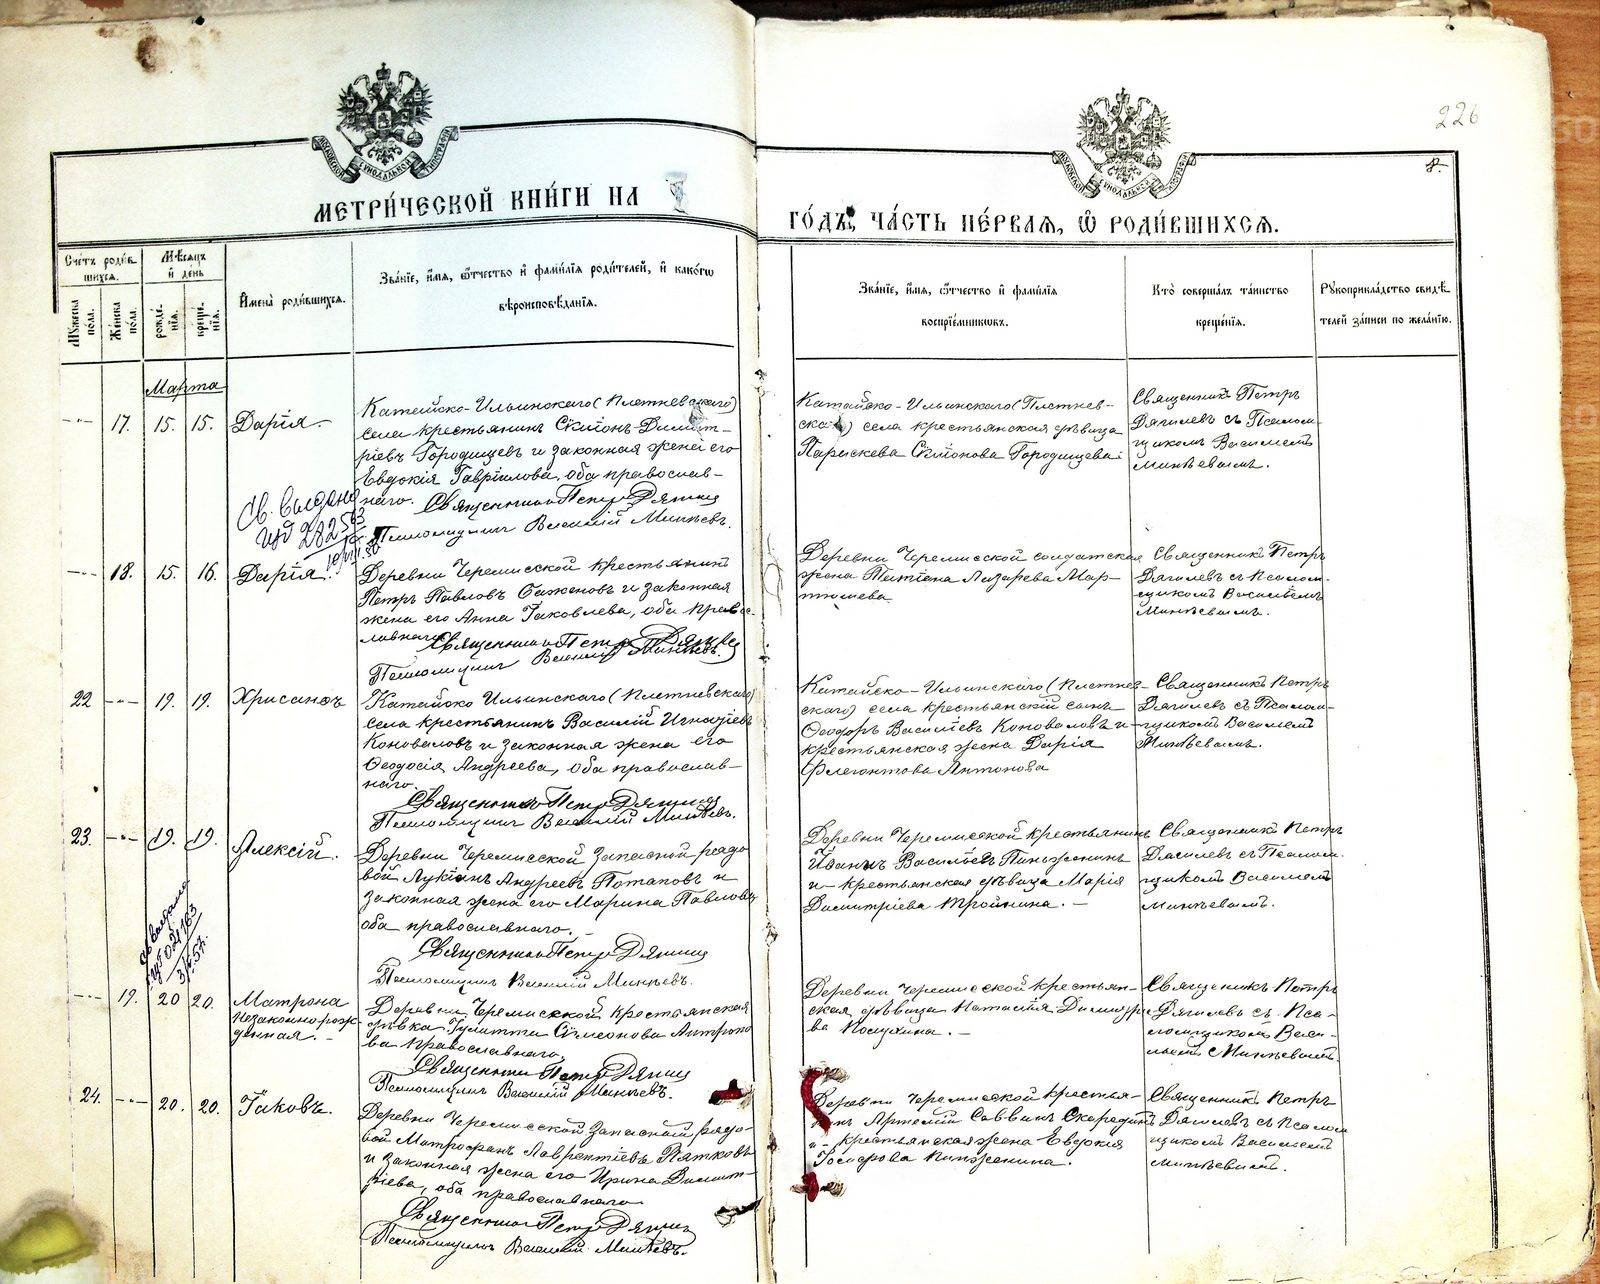 226
8.
МОСКОВСКОЙ СѴНОДАЛЬНОЙ ТИПОГРАФІИ
МОСКОВСКОЙ СѴНОДАЛЬНОЙ ТИПОГРАФІИ
МЕТРИ́ЧЕСКОЙ КНИ́ГИ НА
ГО́ДЪ, ЧА́СТЬ ПЕ́РВАЯ, Ѡ҆ РОДИ́ВШИХСЯ.
Сче́тъ роди́в
шихся.
Мꙋжеска по́ла.
Же́нска по́ла.
Мѣсяцъ
и҆ де́нь
рожде́нїя.
креще́нїя.
И҆мена̀ роди́вшихся.
Зва́нїе, и҆́мя, ѻ҆́тчество и҆ фами́лїя роди́телей, и҆ како́гѡ
вѣроисповѣ́данїя.
Зва́нїе, и҆́мя, ѻ҆́тчество и҆ фами́лїя
воспрїе́мникѡвъ.
Кто̀ соверша́лъ та́инство
креще́нїя.
Рꙋкоприкла́дство свидѣ́
телей за́писи по жела́нїю.
Марта
17. 15. 15. Дарія.
Катайско-Ильинскаго (Плетневскаго)
села крестьянинъ Сѵмеонъ Димит-
ріевъ Городищевъ и законная жена его
Евдокія Гавріилова, оба православ-
наго. Священникъ Петръ Дягилевъ
Псаломщикъ Василій Минѣевъ.
Катайско-Ильинскаго (Плетнев-
скаго) села крестьянская дѣвица
Параскева Сѵмеонова Городищева
Священникъ Петръ
Дягилевъ съ Псалом-
щикомъ Василіемъ
Минѣевымъ.
Св. выдано
18. 15. 16. Дарія.
Деревни Черемисской крестьянинъ
Петръ Павловъ Баженовъ и законная
жена его Анна Іаковлева, оба правос-
лавнаго. Священникъ Петръ Дягилевъ
Псаломщикъ Василій Минѣевъ.
Деревни Черемисской солдатская
жена Татіана Лазарева Мар-
тюшева
Священникъ Петръ
Дягилевъ съ Псалом-
щикомъ Василіемъ
Минѣевымъ.
22 19. 19. Хрисанѳъ
Катайско Ильинскаго (Плетневскаго)
села крестьянинъ Василій Игнатіевъ
Коноваловъ и законная жена его
Ѳеодосія Андреева, оба православ-
наго.
Священникъ Петръ Дягилевъ
Псаломщикъ Василій Минѣевъ.
Катайско-Ильинскаго (Плетнев-
скаго) села крестьянскій сынъ
Ѳеодоръ Василіевъ Коноваловъ и
крестьянская жена Дарія
Флегонтова Антонова
Священникъ Петръ
Дягилевъ съ Псалом-
щикомъ Василіемъ
Минѣевымъ.
23. 19. 19. Алексій.
Деревни Черемисской запасной рядо-
вой Лукіанъ Андреевъ Потаповъ и
законная жена его Марина Павлова
оба православнаго.
Священникъ Петръ Дягилевъ
Псаломщикъ Василій Минѣевъ.
Деревни Черемисской крестьянинъ
Иванъ Васильевъ Пинженинъ
и крестьянская дѣвица Марія
Димитріева Тройнина.
Священникъ Петръ
Дягилевъ съ Псалом-
щикомъ Василіемъ
Минѣевымъ.
19. 20 20. Матрона
незаконнорож-
денная.
Деревни Черемисской крестьянская
дѣвка Іулитта Сѵмеонова Антропо
ва православнаго.
Священникъ Петръ Дягилевъ
Псаломщикъ Василій Минѣевъ.
Деревни Черемисской крестьян-
ская дѣвица Наталія Димитріе
ва
Священникъ Петръ
Дягилевъ съ Пса-
ломщикомъ Васи-
ліемъ Минѣевымъ
24. 20. 20. Іаковъ.
Деревни Черемисской запасный рядо-
вой Митрофанъ Лаврентіевъ Пятковъ
и законная жена его Ирина Димит-
ріева, оба православнаго
Священникъ Петръ Дягилевъ
Псаломщикъ Василій Минѣевъ.
Деревни Черемисской крестья-
нинъ Артемій Саввинъ
и крестьянская жена Евдокія
Пинженина.
Священникъ Петръ
Дягилевъ съ Псалом
щикомъ Василіемъ
Минѣевымъ.